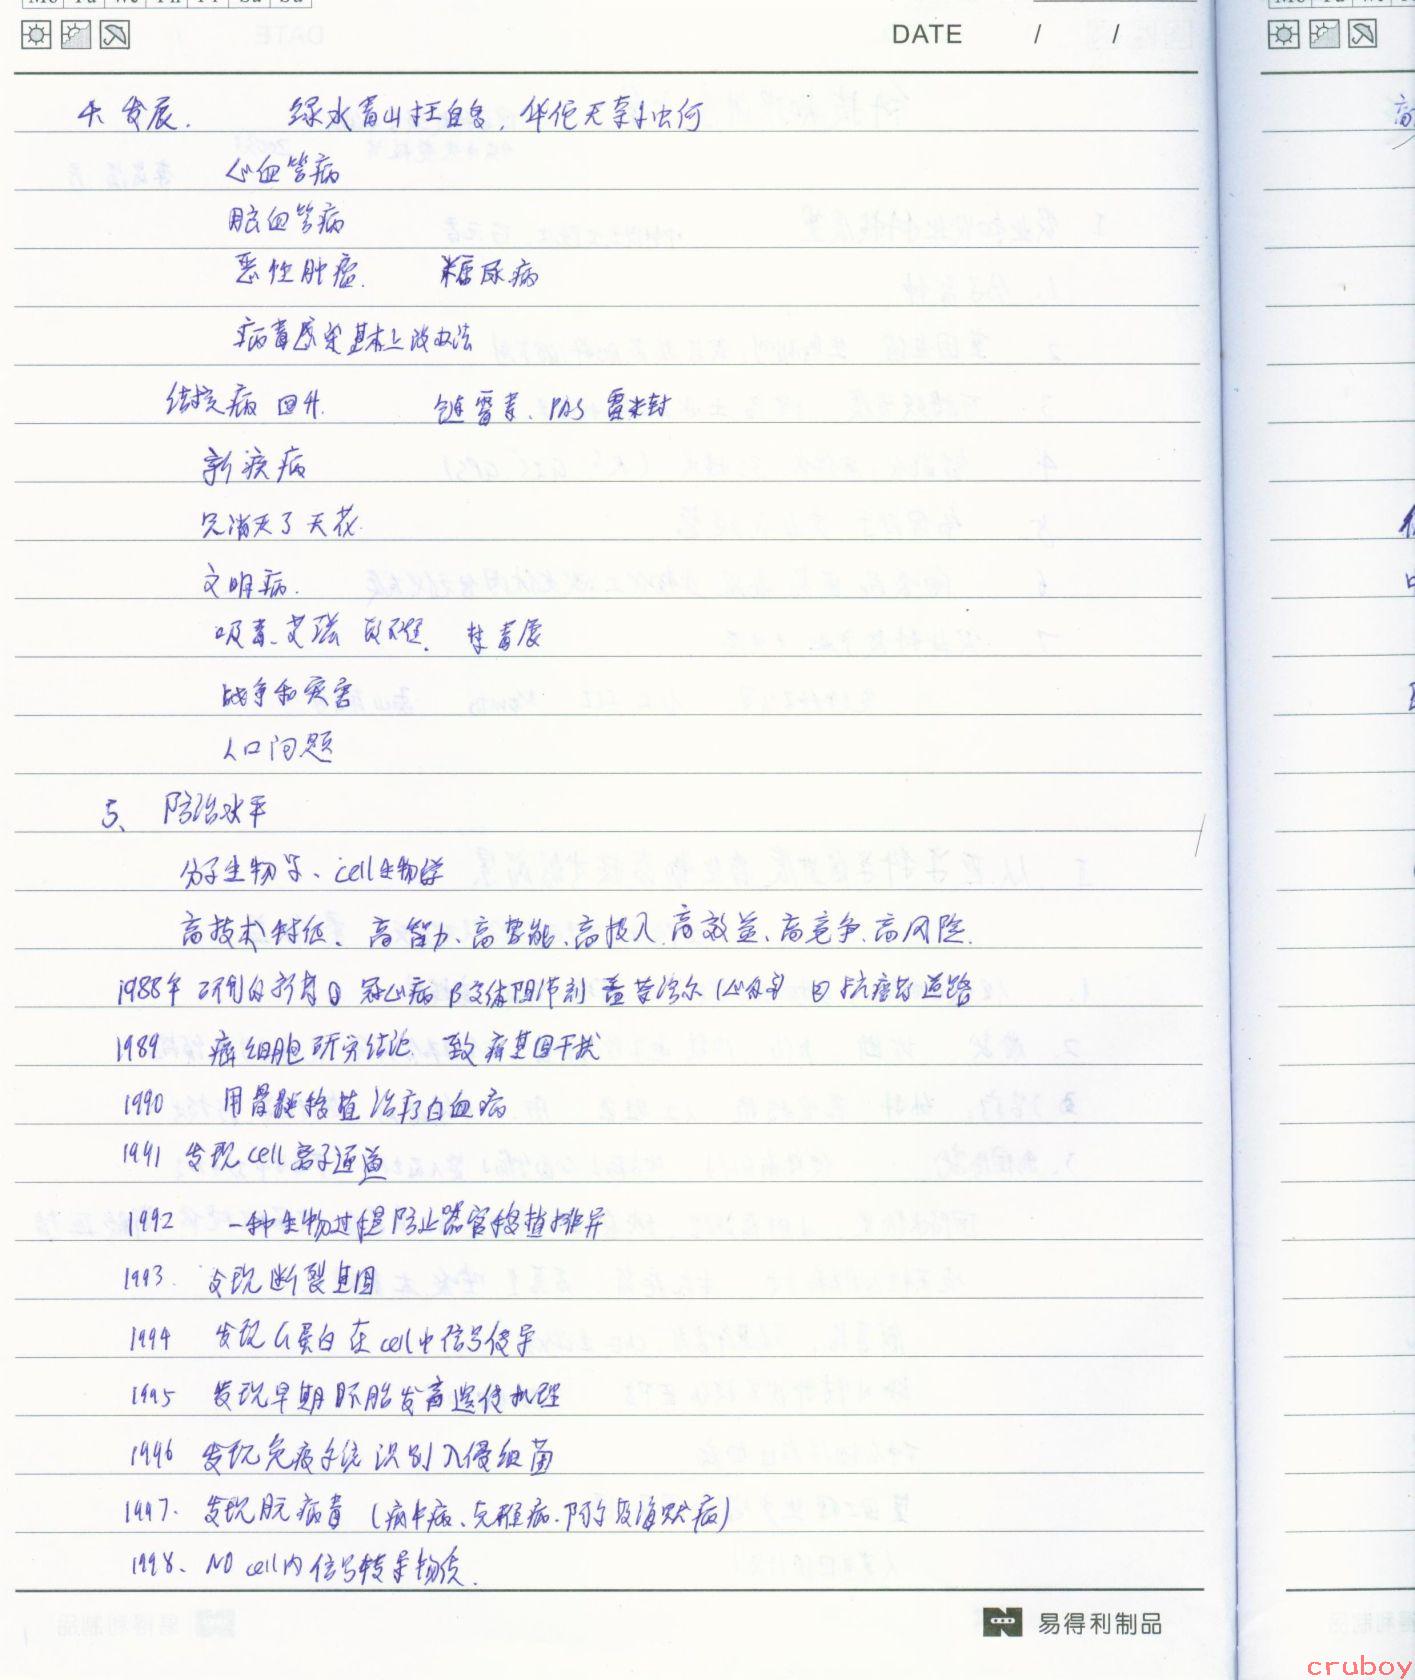 Mo Tu We Th Fr Sa Su
DATE / /
4. 发展. 绿水青山枉自多，华佗无奈小虫何
心血管病
脑血管病
恶性肿瘤. 糖尿病
病毒感染基本上没办法
结核病 回升. 链霉素、PAS 雷米封
新疾病
只消灭了天花.
文明病.
吸毒、艾滋 戒毒
战争和灾害
人口问题
5、防治水平
分子生物学、cell生物学
高技术特征、高智力、高势能、高投入、高效益、高竞争、高风险.
1988年 研制的新药 冠心病 β受体阻滞剂 普萘洛尔(心得安) 抗癌 道路
1989 癌细胞研究结论 致癌基因干扰
1990 用骨髓移植治疗白血病
1991 发现cell离子通道
1992 一种生物过程防止器官移植排异
1993. 发现断裂基因
1994 发现G蛋白在cell中信号传导
1995 发现早期胚胎发育遗传机理
1996 发现免疫系统识别入侵细菌
1997. 发现朊病毒 (疯牛病、克雅病、阿尔茨海默病)
1998、NO cell内信号转导物质.
易得利制品
cruboy